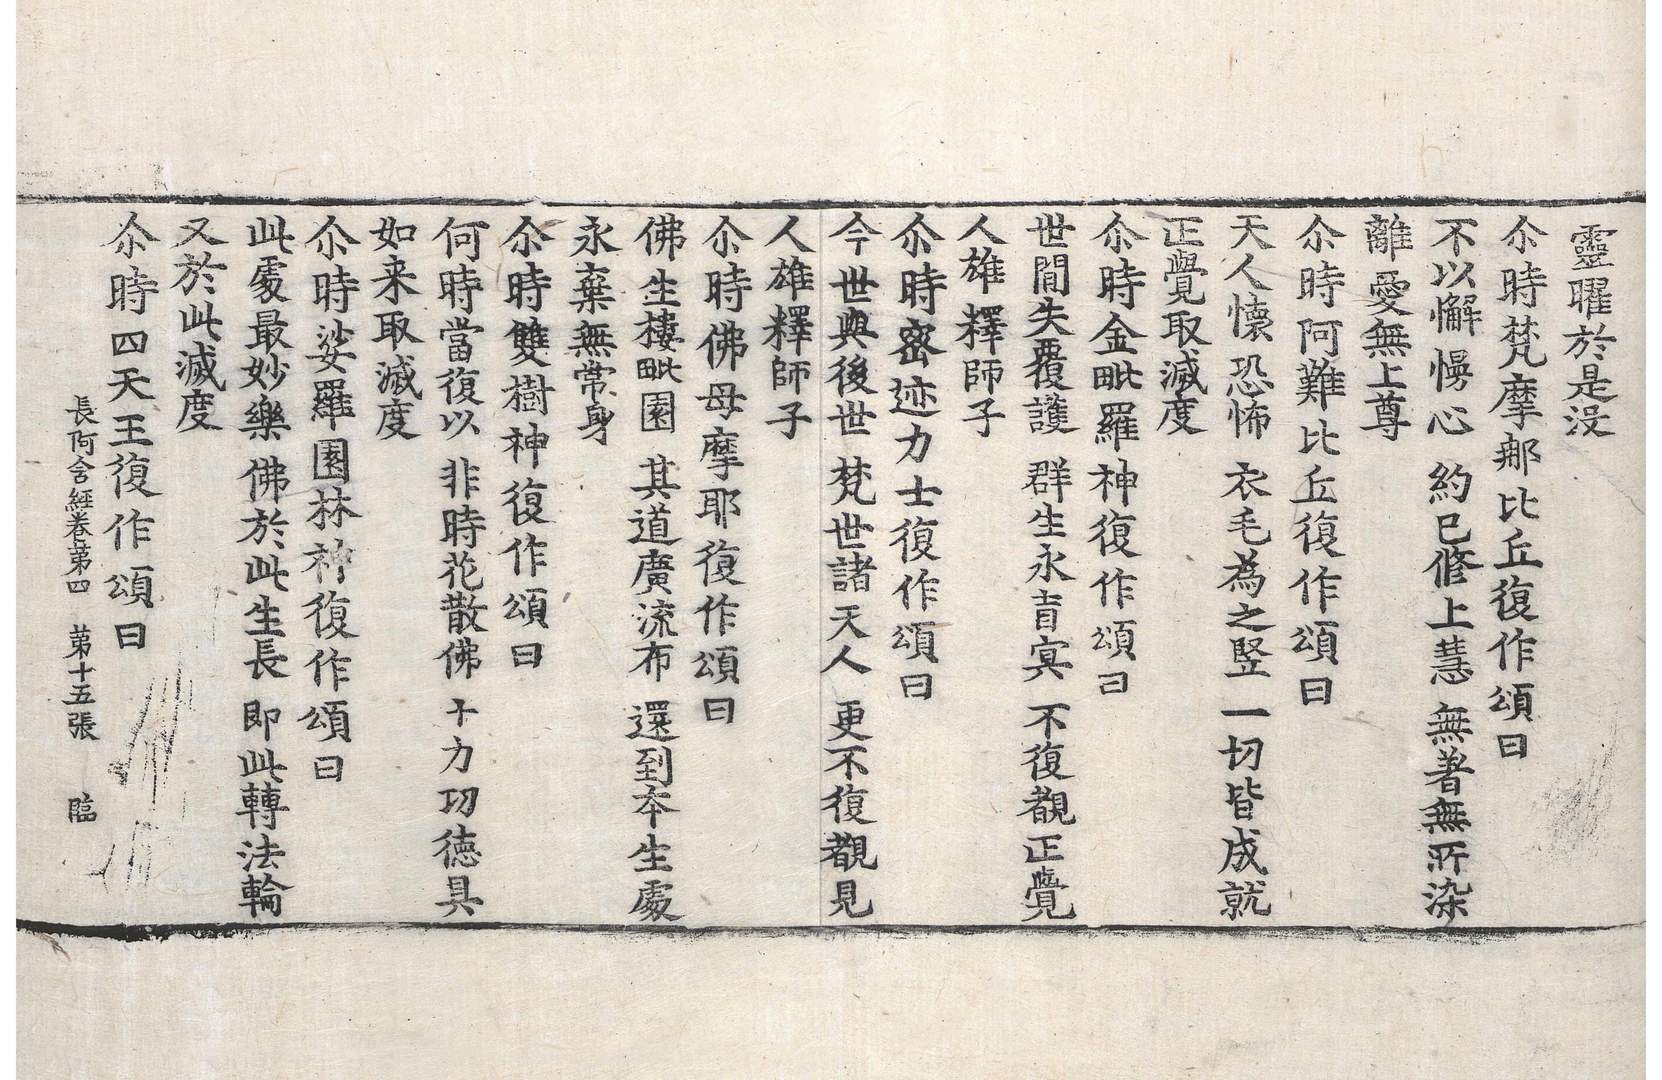 靈曜於是没
尒時梵摩那比丘復作頌曰
不以懈慢心 約已修上慧 無著無所染
離愛無上尊
尒時阿難比丘復作頌曰
天人懷恐怖 衣毛為之竪 一切皆成就
正覺取滅度
尒時金毗羅神復作頌曰
世間失覆護 群生永盲冥 不復覩正覺
人雄釋師子
尒時密迹力士復作頌曰
今世與後世 梵世諸天人 更不復覩見
人雄釋師子
尒時佛母摩耶復作頌曰
佛生樓毗園 其道廣流布 還到本生處
永棄無常身
尒時雙樹神復作頌曰
何時當復以 非時花散佛 十力功德具
如来取滅度
尒時娑羅園林神復作頌曰
此處最妙樂 佛於此生長 即此轉法輪
又於此滅度
尒時四天王復作頌曰
長阿含經卷第四 第十五張 臨